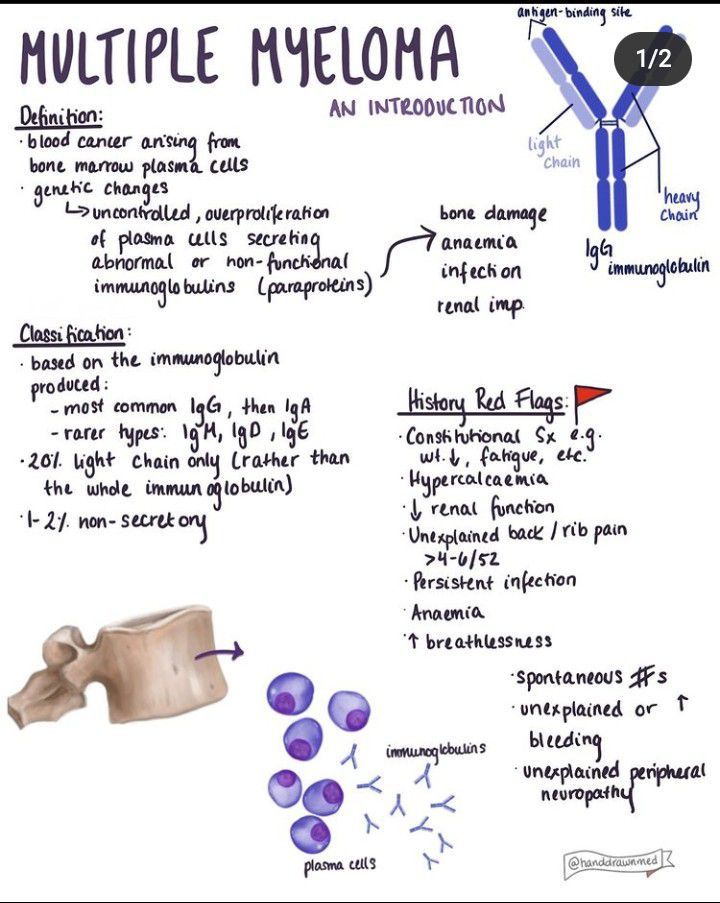 MULTIPLE MYELOMA
AN INTRODUCTION
1/2
antigen-binding site
light
chain
heavy
chain
IgG
immunoglobulin
Definition:
· blood cancer arising from
bone marrow plasma cells
· genetic changes
↳ uncontrolled, overproliferation
of plasma cells secreting
abnormal or non-functional
immunoglobulins (paraproteins)
bone damage
anaemia
infection
renal imp.
Classification:
· based on the immunoglobulin
produced:
- most common IgG, then IgA
- rarer types: IgM, IgD, IgE
· 20% light chain only (rather than
the whole immunoglobulin)
· 1-2% non-secretory
History Red Flags:
· Constitutional Sx e.g.
wt. ↓, fatigue, etc.
· Hypercalcaemia
· ↓ renal function
· Unexplained back / rib pain
>4-6/52
· Persistent infection
· Anaemia
· ↑ breathlessness
· spontaneous #s
· unexplained or ↑
bleeding
· unexplained peripheral
neuropathy
immunoglobulins
plasma cells
@handdrawnmed